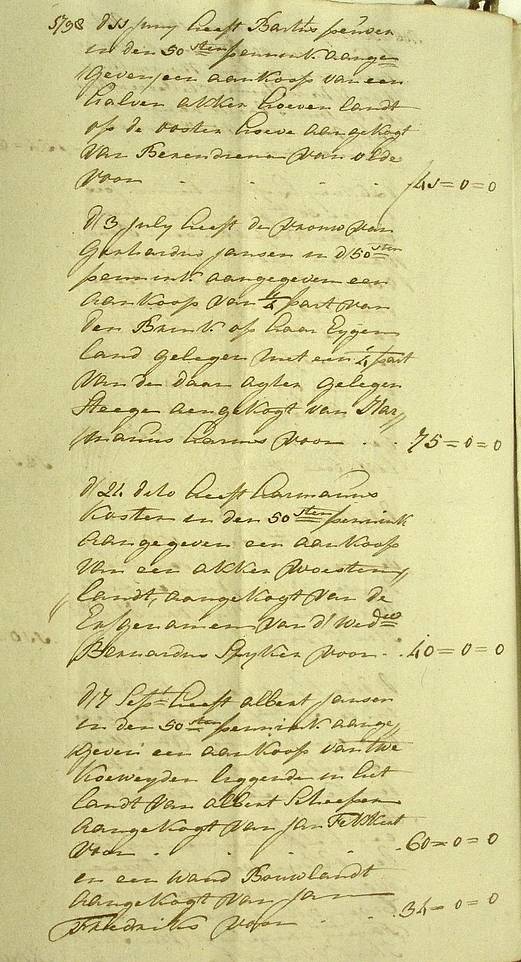 1798 d 11 Juny heeft Barths Jansen
in den 50 sten pennink aange
geven een aankoop van een
halven akker hoeven landt
op de ooster hoeve aangekogt
van Berendiena van olde
voor . . . . 45=0=0
d 3 July heeft de vrouw van
Gerhardus Jansen in d 50 sten
pennink aangegeven een
aankoop van 1/4 part van
den Brink op haar Eygen
land gelegen met een 1/4 part
van den daar agter gelegen
Steege aangekogt van Har
manus Harms voor . . 75=0=0
d 21 dito heeft harmanus
Koster in den 50 sten pennink
aangegeven een aankoop
van een akker woesten
landt, aangekogt van de
Erfgenamen van d' Wed
Bernardus Spyker voor . . 40=0=0
d 7 Sept heeft albert Jansen
in den 50 sten pennink aange
geven een aankoop van twe
Koeweyden liggende in het
landt van albert Scheepen
aangekogt van Jan
voor . . . . 60=0=0
en een wand Bouwlandt
aangekogt van Jan
Friedriks voor . . . 34=0=0